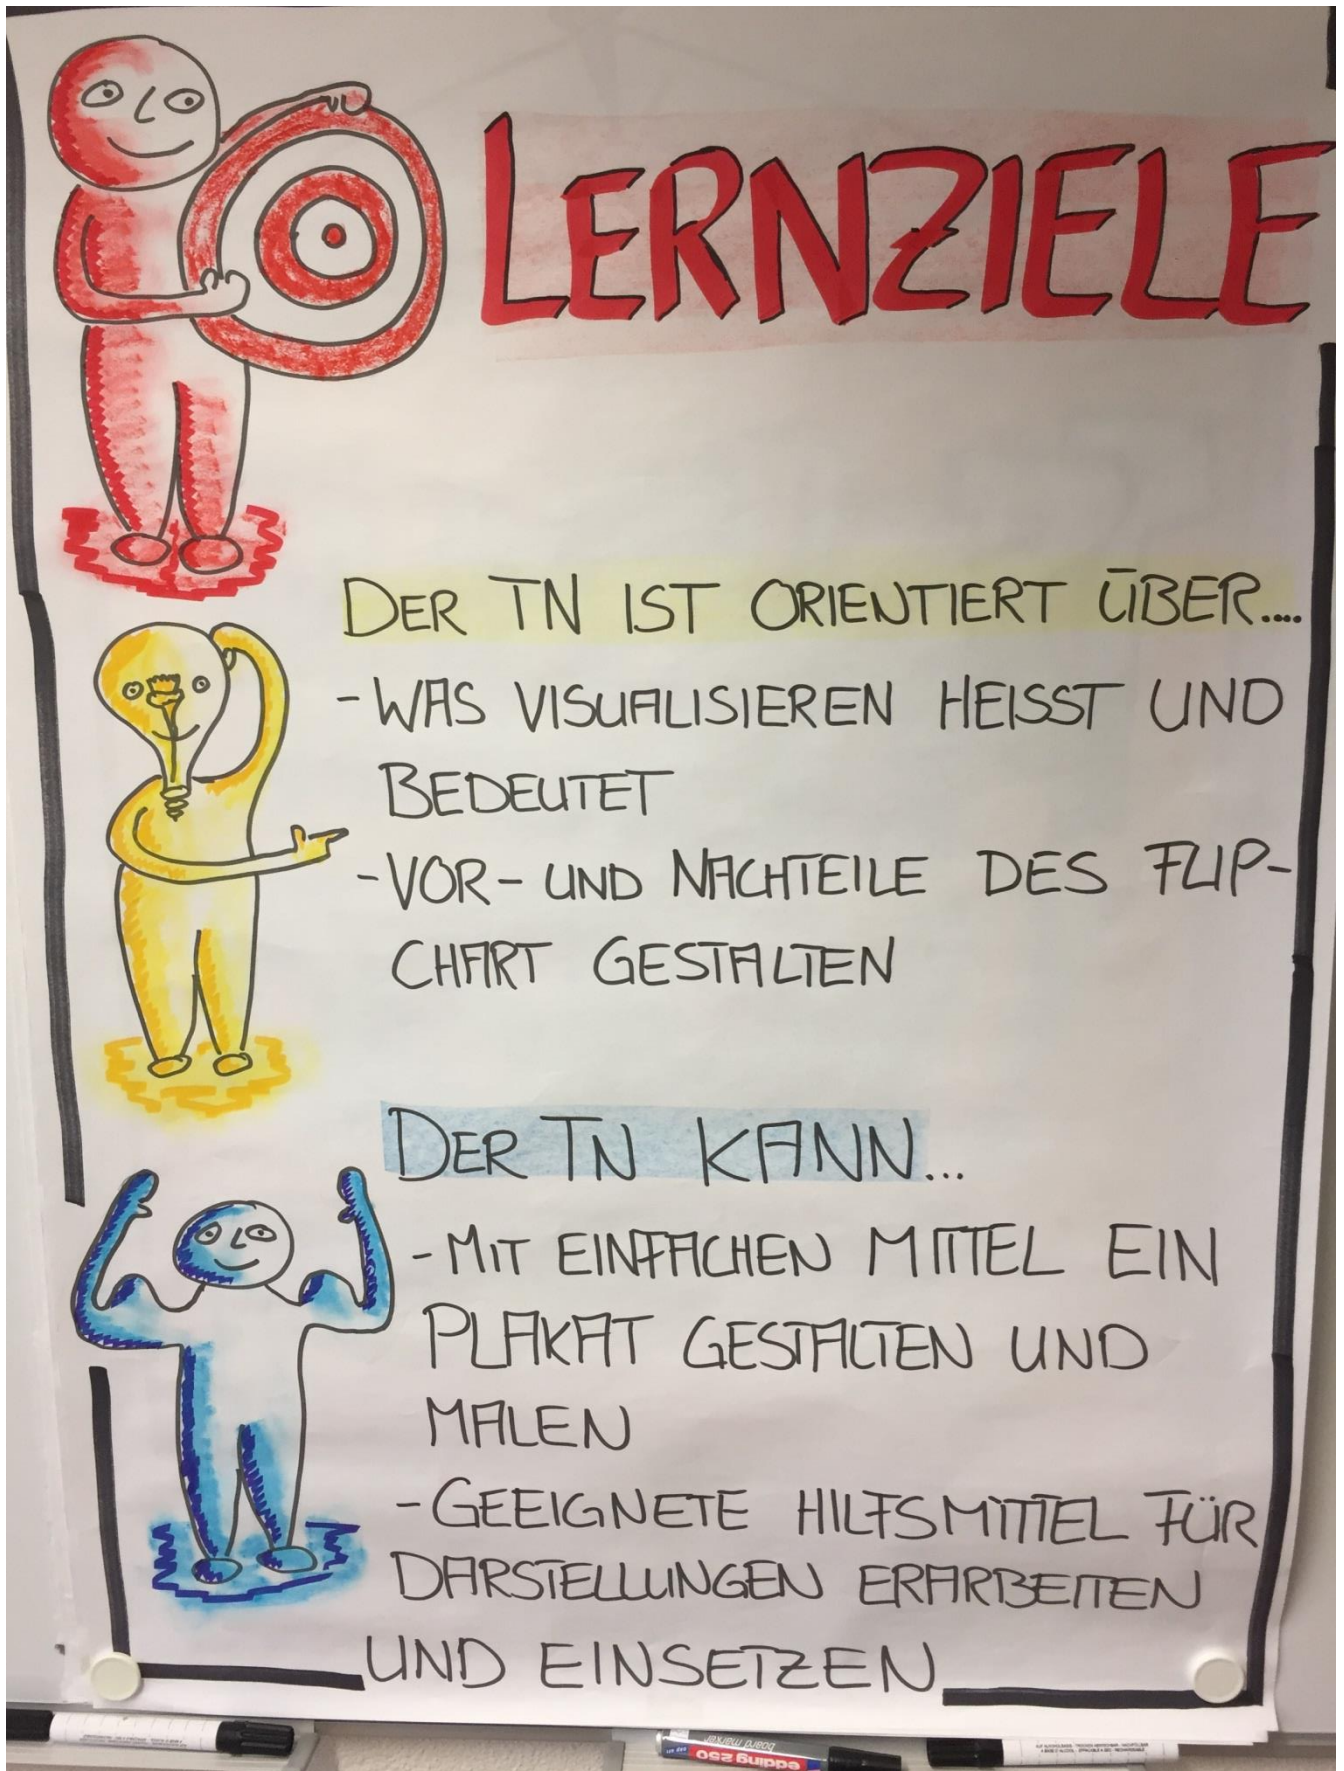 LERNZIELE
DER TN IST ORIENTIERT ÜBER....
- WAS VISUALISIEREN HEISST UND
BEDEUTET
- VOR- UND NACHTEILE DES FLIP-
CHART GESTALTEN
DER TN KANN...
- MIT EINFACHEN MITTEL EIN
PLAKAT GESTALTEN UND
MALEN
- GEEIGNETE HILFSMITTEL FÜR
DARSTELLUNGEN ERARBEITEN
UND EINSETZEN
edding 250
board marker